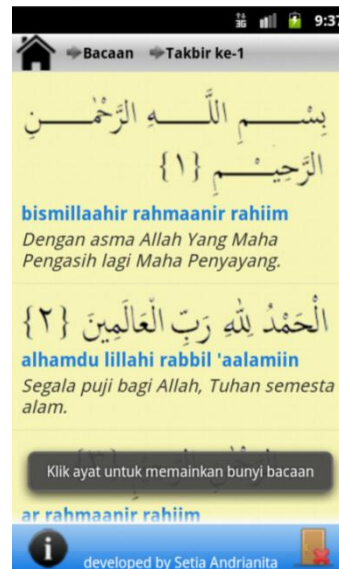 3G 9:37
Bacaan Takbir ke-1
بِسْمِ اللَّهِ الرَّحْمٰنِ
الرَّحِيْمِ {١}
bismillaahir rahmaanir rahiim
Dengan asma Allah Yang Maha
Pengasih lagi Maha Penyayang.
الْحَمْدُ لِلَّهِ رَبِّ الْعَالَمِينَ {٢}
alhamdu lillahi rabbil 'aalamiin
Segala puji bagi Allah, Tuhan semesta
alam.
Klik ayat untuk memainkan bunyi bacaan
ar rahmaanir rahiim
developed by Setia Andrianita